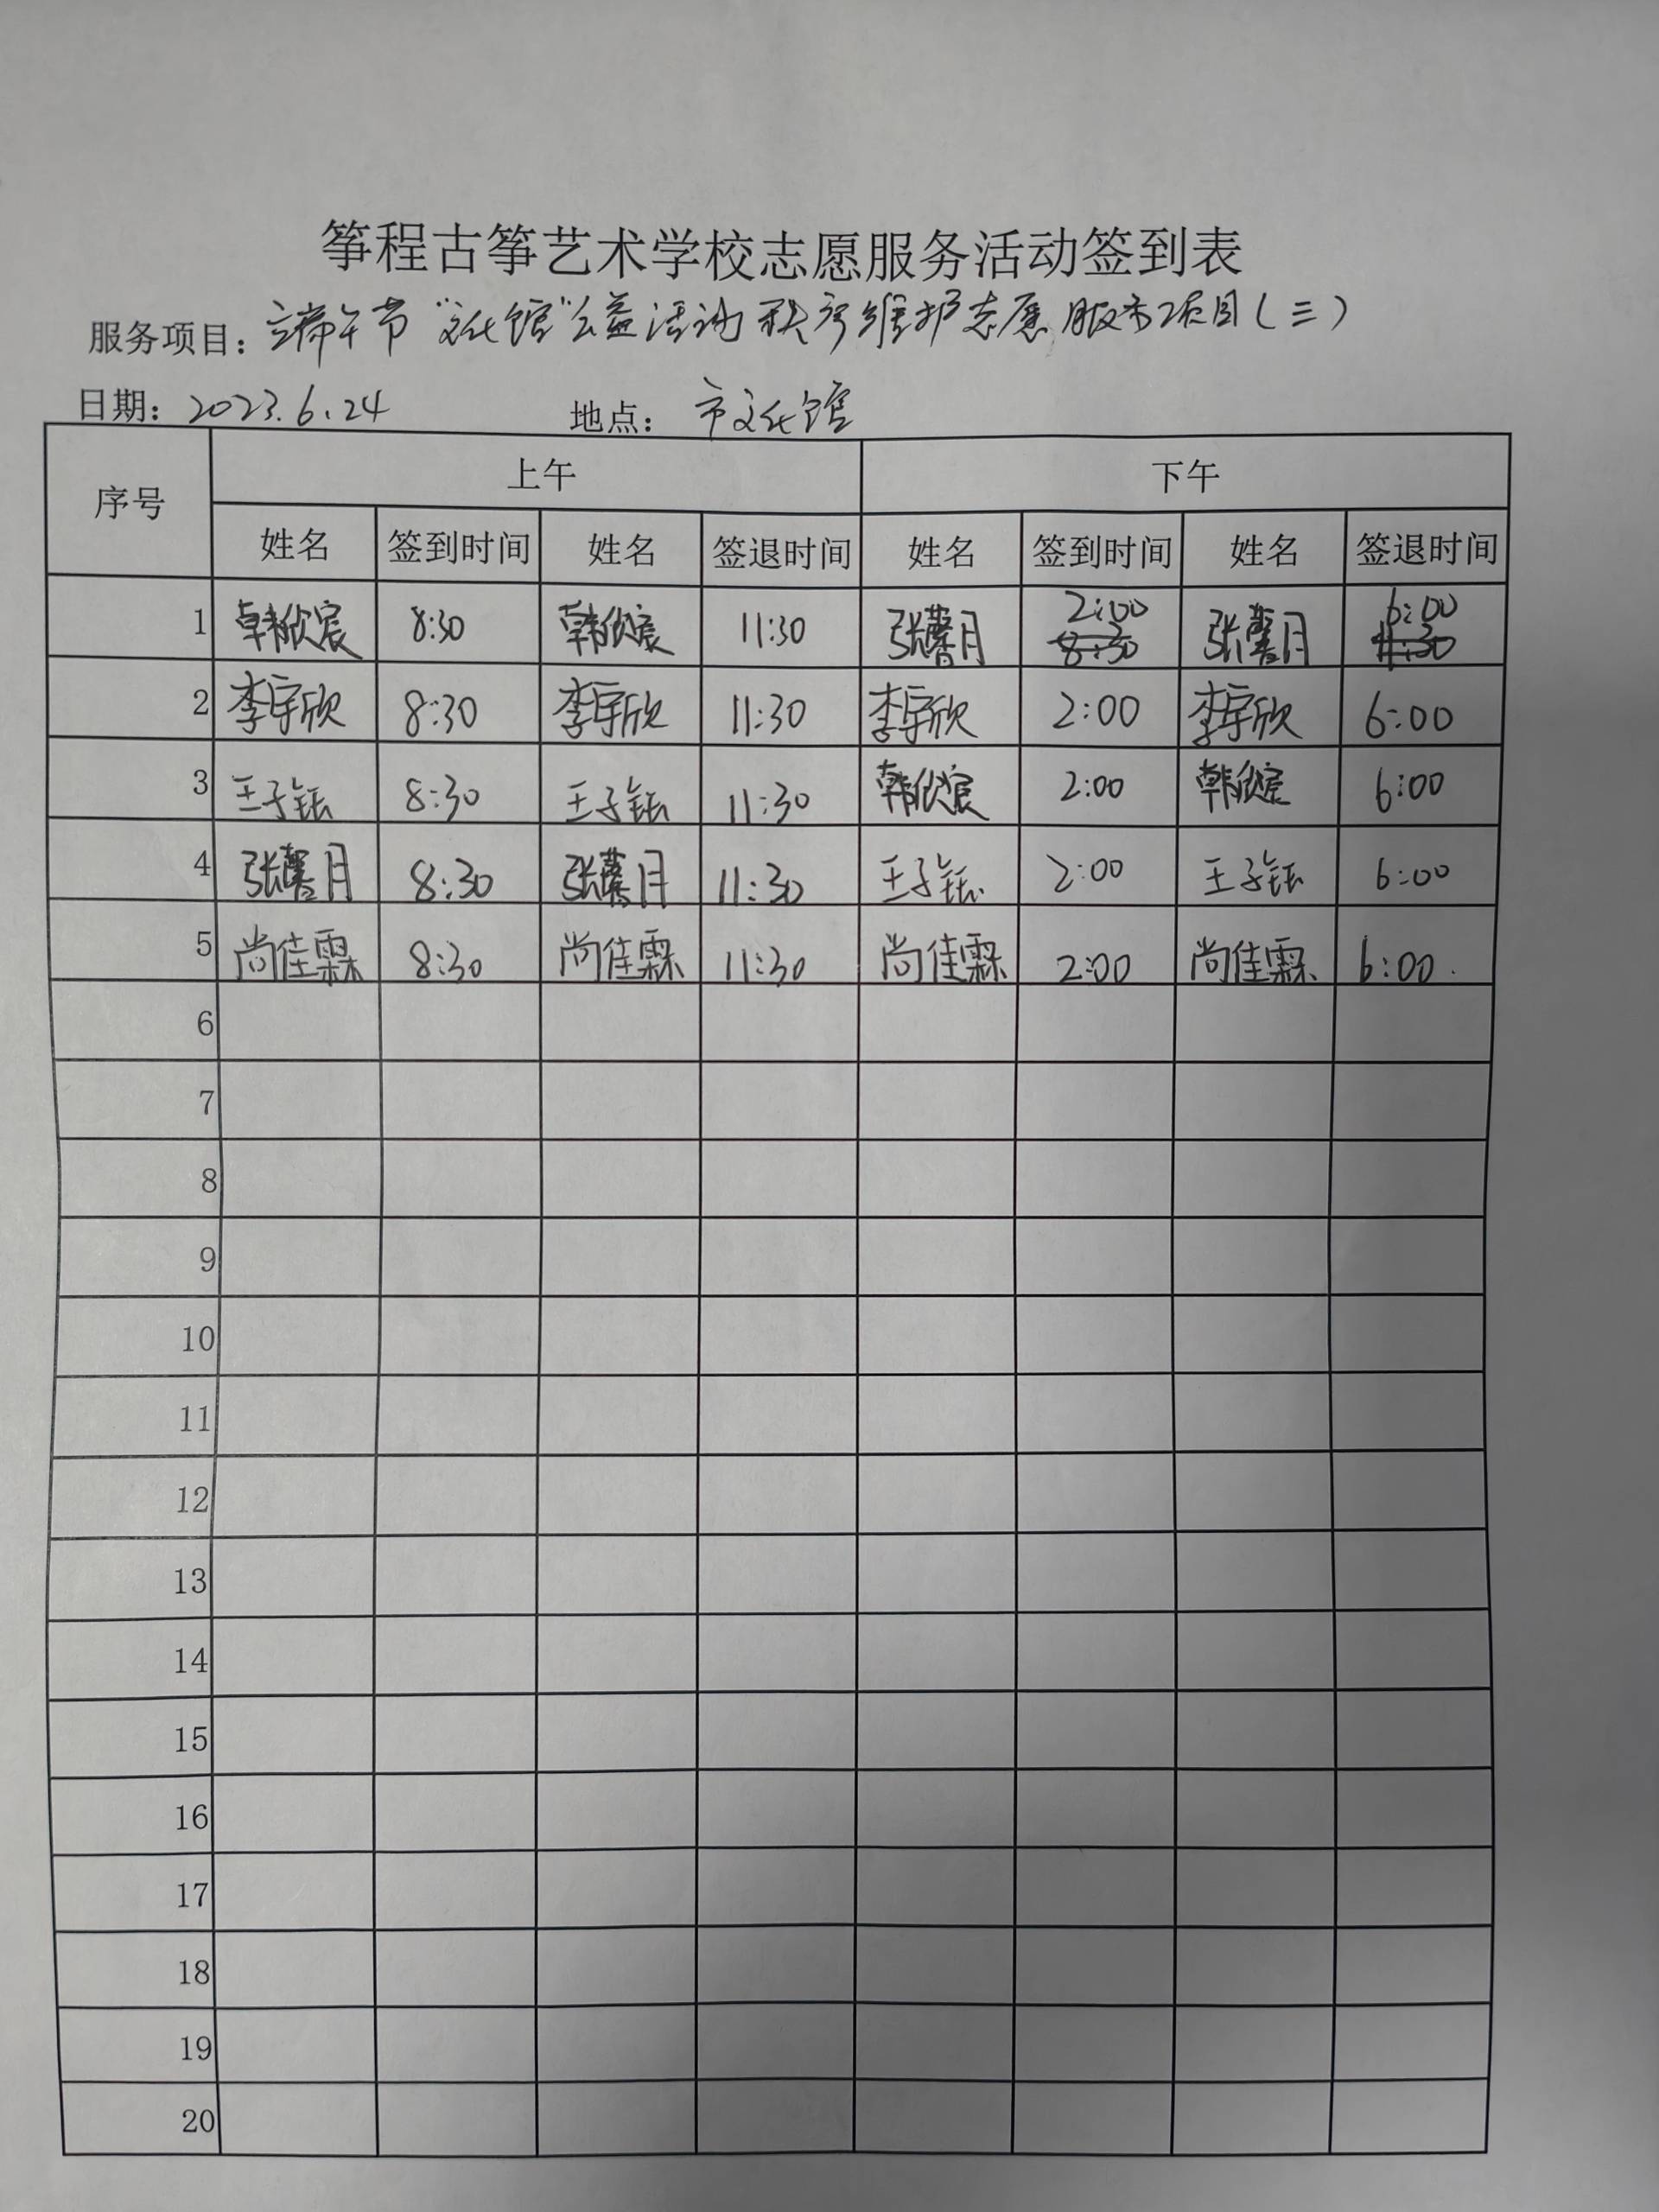 筝程古筝艺术学校志愿服务活动签到表
服务项目：端午节“文化馆”公益活动秩序维护志愿服务项目(三)
日期：2023.6.24 地点：市文化馆
序号 上午 下午
姓名 签到时间 姓名 签退时间 姓名 签到时间 姓名 签退时间
1 韩欣宸 8:30 韩欣宸 11:30 张馨月 2:00 8:30 张馨月 6:00 11:30
2 李宇欣 8:30 李宇欣 11:30 李宇欣 2:00 李宇欣 6:00
3 王子钰 8:30 王子钰 11:30 韩欣宸 2:00 韩欣宸 6:00
4 张馨月 8:30 张馨月 11:30 王子钰 2:00 王子钰 6:00
5 尚佳霖 8:30 尚佳霖 11:30 尚佳霖 2:00 尚佳霖 6:00
6
7
8
9
10
11
12
13
14
15
16
17
18
19
20